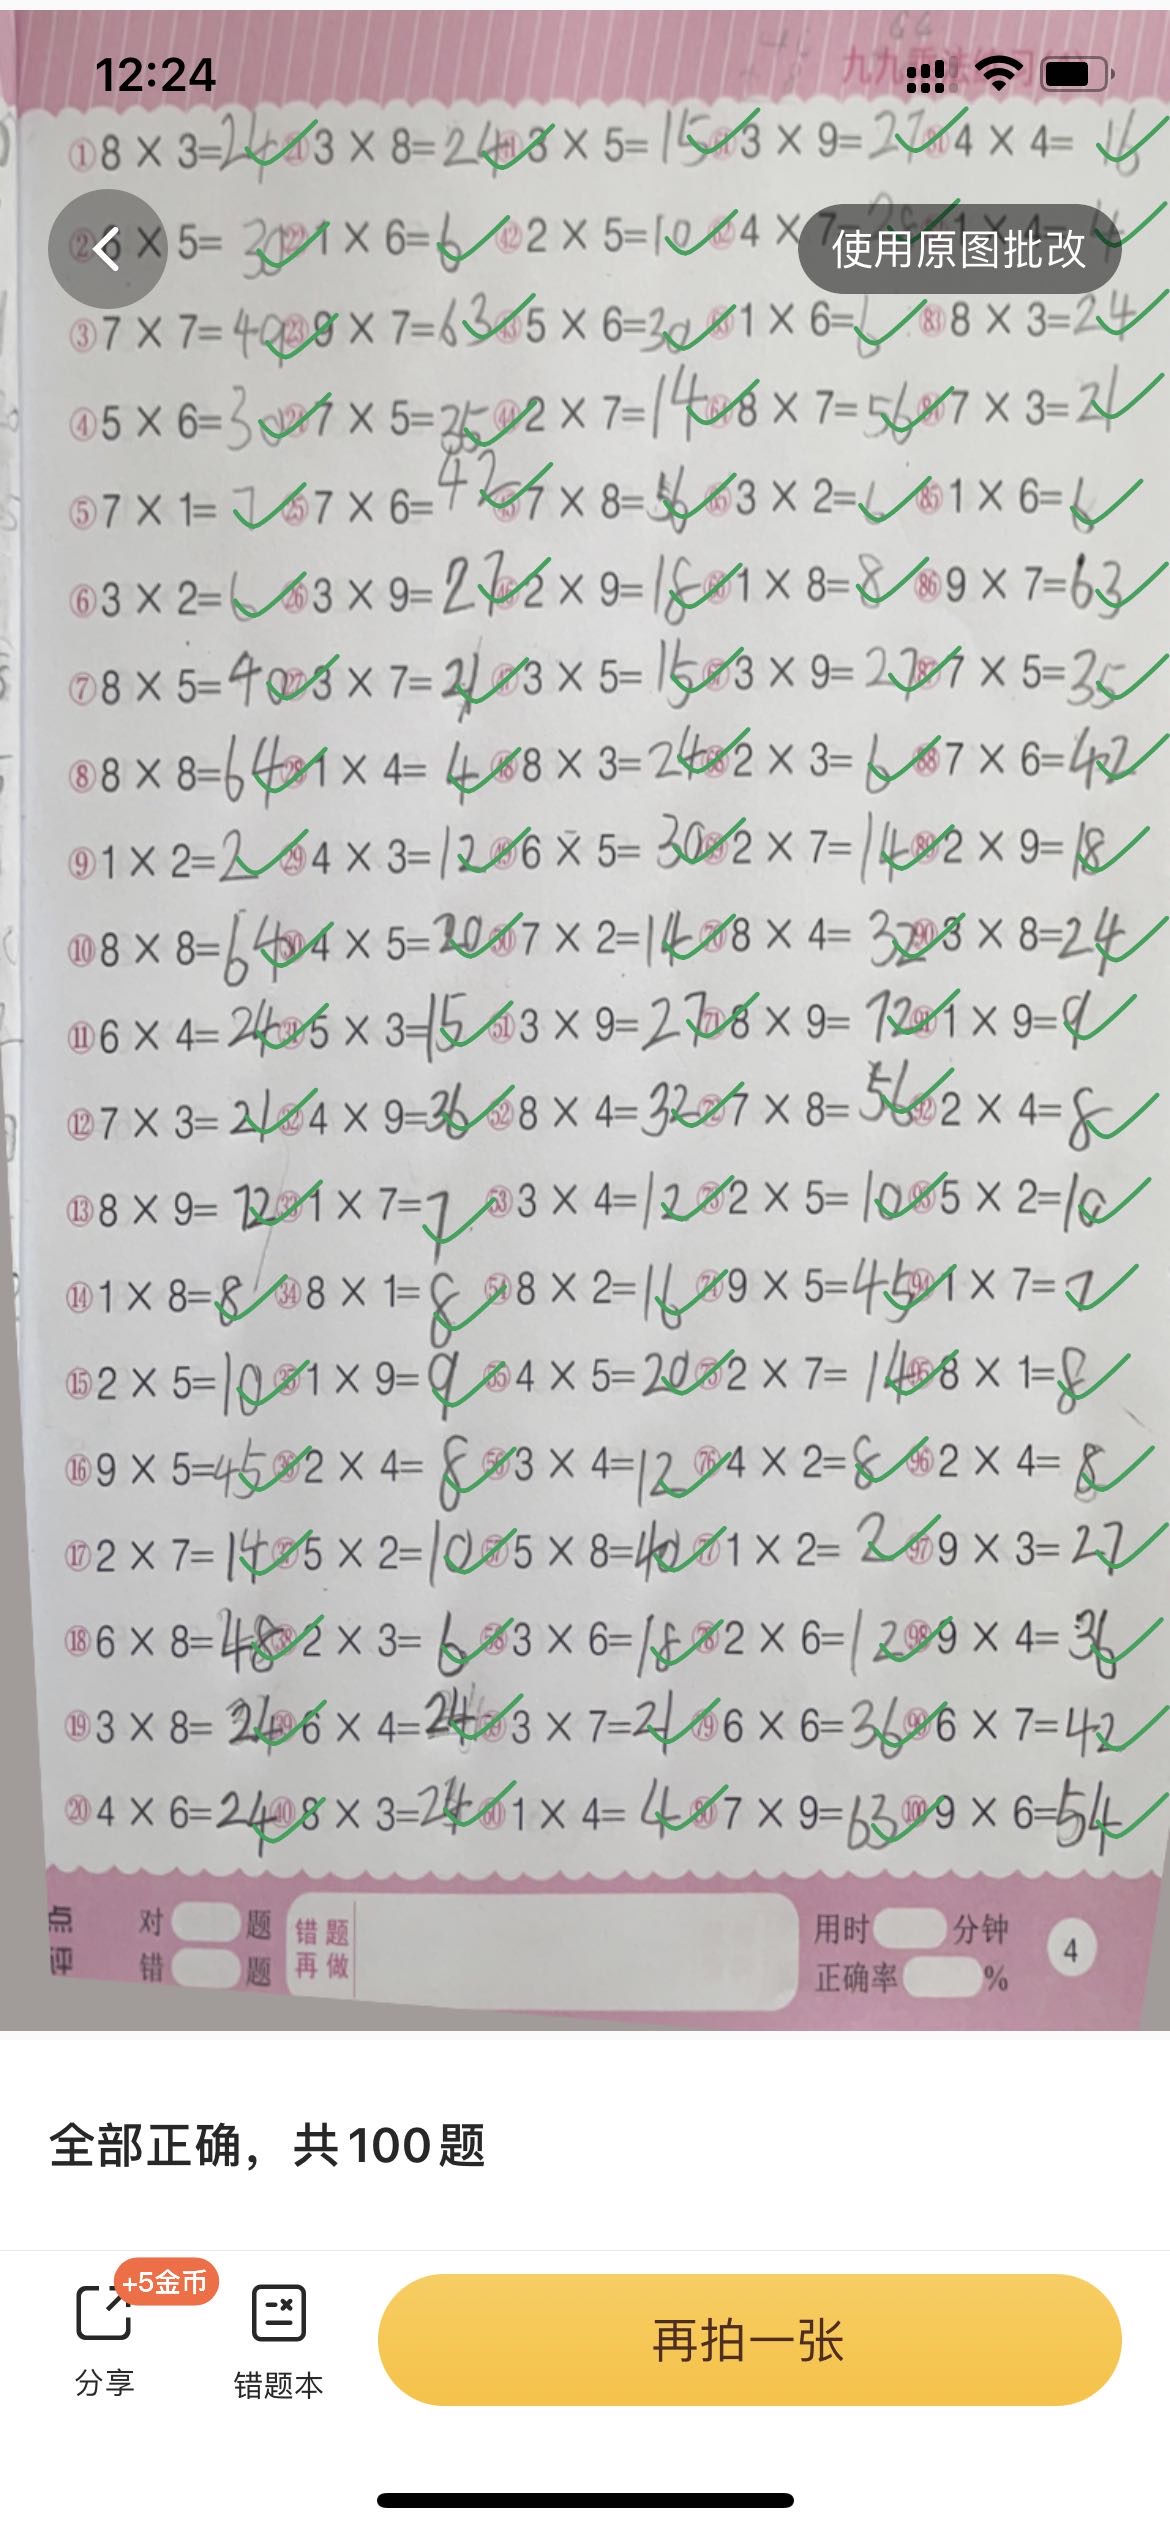 12:24
①8 × 3=24 ㉑3 × 8=24 ㊶3 × 5=15 61 3 × 9=27 81 4 × 4=16
②6 × 5=30 ㉒1 × 6=6 ㊷2 × 5=10 62 4 × 7=28 1 × 4=4
使用原图批改
③7 × 7=49 ㉓9 × 7=63 ㊸5 × 6=30 63 1 × 6=6 83 8 × 3=24
④5 × 6=30 ㉔7 × 5=35 ㊹2 × 7=14 64 8 × 7=56 84 7 × 3=21
⑤7 × 1=7 ㉕7 × 6=42 ㊺7 × 8=56 65 3 × 2=6 85 1 × 6=6
⑥3 × 2=6 ㉖3 × 9=27 ㊻2 × 9=18 66 1 × 8=8 86 9 × 7=63
⑦8 × 5=40 ㉗3 × 7=21 ㊼3 × 5=15 67 3 × 9=27 87 7 × 5=35
⑧8 × 8=64 ㉘1 × 4=4 ㊽8 × 3=24 68 2 × 3=6 88 7 × 6=42
⑨1 × 2=2 ㉙4 × 3=12 ㊾6 × 5=30 69 2 × 7=14 89 2 × 9=18
⑩8 × 8=64 ㉚4 × 5=20 ㊿7 × 2=14 70 8 × 4=32 90 3 × 8=24
⑪6 × 4=24 ㉛5 × 3=15 51 3 × 9=27 71 8 × 9=72 91 1 × 9=9
⑫7 × 3=21 ㉜4 × 9=36 52 8 × 4=32 72 7 × 8=56 92 2 × 4=8
⑬8 × 9=72 ㉝1 × 7=7 53 3 × 4=12 73 2 × 5=10 93 5 × 2=10
⑭1 × 8=8 ㉞8 × 1=8 54 8 × 2=16 74 9 × 5=45 94 1 × 7=7
⑮2 × 5=10 ㉟1 × 9=9 55 4 × 5=20 75 2 × 7=14 95 8 × 1=8
⑯9 × 5=45 ㊱2 × 4=8 56 3 × 4=12 76 4 × 2=8 96 2 × 4=8
⑰2 × 7=14 ㊲5 × 2=10 57 5 × 8=40 77 1 × 2=2 97 9 × 3=27
⑱6 × 8=48 ㊳2 × 3=6 58 3 × 6=18 78 2 × 6=12 98 9 × 4=36
⑲3 × 8=24 ㊴6 × 4=24 59 3 × 7=21 79 6 × 6=36 99 6 × 7=42
⑳4 × 6=24 ㊵8 × 3=24 60 1 × 4=4 80 7 × 9=63 100 9 × 6=54
点评
对 题
错 题
错题
再做
用时 分钟
正确率 %
4
全部正确，共100题
+5金币
分享
错题本
再拍一张